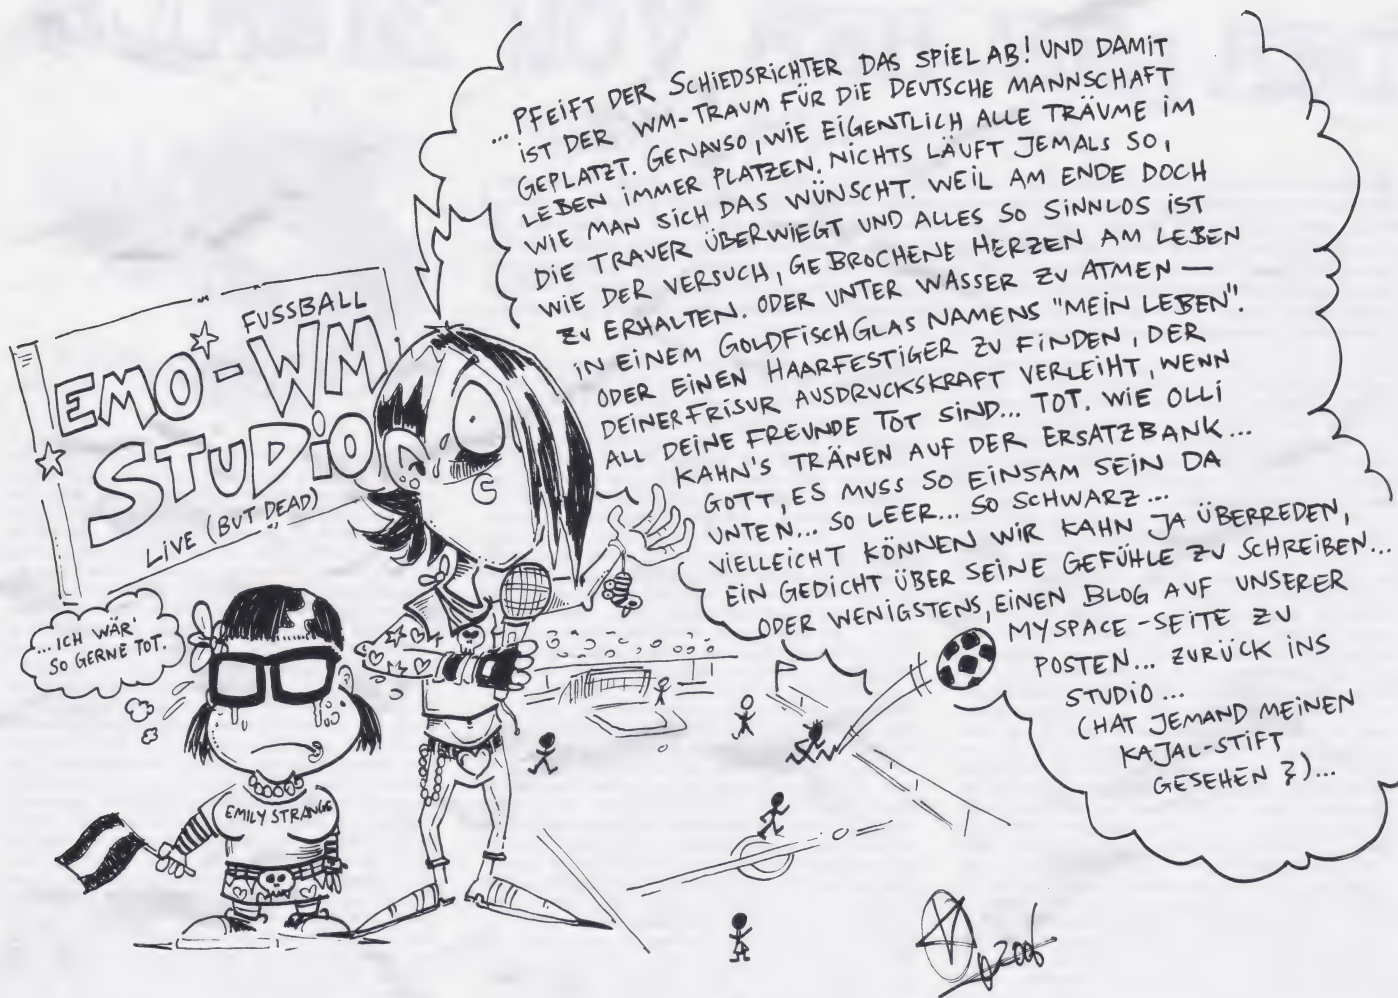 ...PFEIFT DER SCHIEDSRICHTER DAS SPIEL AB! UND DAMIT
IST DER WM-TRAUM FÜR DIE DEUTSCHE MANNSCHAFT
GEPLATZT. GENAUSO, WIE EIGENTLICH ALLE TRÄUME IM
LEBEN IMMER PLATZEN. NICHTS LÄUFT JEMALS SO,
WIE MAN SICH DAS WÜNSCHT. WEIL AM ENDE DOCH
DIE TRAUER ÜBERWIEGT UND ALLES SO SINNLOS IST
WIE DER VERSUCH, GEBROCHENE HERZEN AM LEBEN
ZU ERHALTEN. ODER UNTER WASSER ZU ATMEN —
IN EINEM GOLDFISCHGLAS NAMENS "MEIN LEBEN".
ODER EINEN HAARFESTIGER ZU FINDEN, DER
DEINER FRISUR AUSDRUCKSKRAFT VERLEIHT, WENN
ALL DEINE FREUNDE TOT SIND... TOT. WIE OLLI
KAHN'S TRÄNEN AUF DER ERSATZBANK...
GOTT, ES MUSS SO EINSAM SEIN DA
UNTEN... SO LEER... SO SCHWARZ...
VIELLEICHT KÖNNEN WIR KAHN JA ÜBERREDEN,
EIN GEDICHT ÜBER SEINE GEFÜHLE ZU SCHREIBEN...
ODER WENIGSTENS, EINEN BLOG AUF UNSERER
MYSPACE-SEITE ZU
POSTEN... ZURÜCK INS
STUDIO...
(HAT JEMAND MEINEN
KAJAL-STIFT
GESEHEN?)...
FUSSBALL
EMO-WM
STUDIO
LIVE (BUT DEAD)
...ICH WÄR'
SO GERNE TOT.
EMILY STRANGE
2006